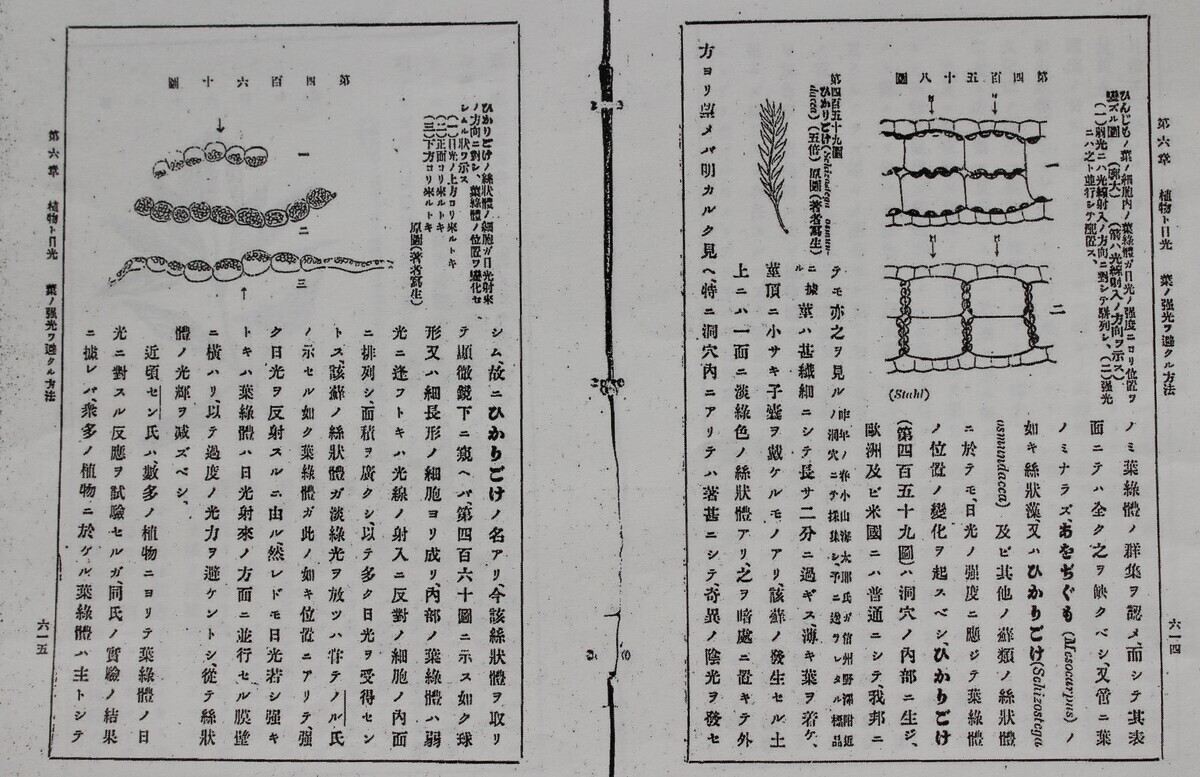 第六章　植物ト日光　葉ノ强光ヲ避クル方法
六一四
第四百五十八圖
ひんじもノ葉ノ細胞内ノ葉綠體ガ日光ノ强度ニヨリ位置ヲ
變ズル圖　(廓大)　(箭ハ光線射入ノ方向ヲ示ス)
(一)弱光ニハ光線射入ノ方向ニ對シテ駢列シ、(二)强光
ニハ之ト並行シテ配置ス、
一
二
(Stahl)
第四百五十九圖
ひかりごけ(Schizostega osmun-
dacea)(五倍)原圖(著者寫生)
ノミ葉綠體ノ群集ヲ認メ、而シテ其表
面ニテハ全ク之ヲ缺クベシ、又啻ニ葉
ノミナラズ、あをぢぐも(Mesocarpus)ノ
如キ絲狀藻、又ハひかりごけ(Schizostega
osmundacca)及ビ其他ノ蘚類ノ絲狀體
ニ於テモ、日光ノ强度ニ應ジテ葉綠體
ノ位置ノ變化ヲ起スベシ、ひかりごけ
(第四百五十九圖)ハ洞穴ノ内部ニ生ジ、
歐洲及ビ米國ニハ普通ニシテ我邦ニ
テモ亦之ヲ見ル
昨年ノ春小山海太郎氏ガ信州野澤附近
ノ洞穴ニテ採集シ、予ニ送ラレタル標品
ニ據
ル
葉ハ甚纎細ニシテ長サ二分ニ過ギズ、薄キ葉ヲ着ケ、
莖頂ニ小サキ子囊ヲ戴ケルモノアリ、該蘚ノ發生セル土
上ニハ一面ニ淡綠色ノ絲狀體アリ、之ヲ暗處ニ置キテ外
方ヨリ望メバ明カルク見ヘ、特ニ洞穴内ニアリテハ著甚ニシテ、奇異ノ陰光ヲ發セ
第四百六十圖
ひかりごけノ絲狀體ノ細胞ガ日光射來
ノ方向ニ對シ、葉綠體ノ位置ヲ變化セ
シムル狀ヲ示ス
(一)日光ノ上方ヨリ來ルトキ
(二)正面ヨリ來ルトキ
(三)下方ヨリ來ルトキ
原圖(著者寫生)
一
二
三
シム、故ニひかりごけノ名アリ、今該絲狀體ヲ取リ
テ顯微鏡下ニ窺ヘバ、第四百六十圖ニ示ス如ク球
形又ハ細長形ノ細胞ヨリ成リ、内部ノ葉綠體ハ弱
光ニ逢フトキハ光線ノ射入ニ反對ノ細胞ノ内面
ニ排列シ、面積ヲ廣クシ、以テ多ク日光ヲ受得セン
トス、該蘚ノ絲狀體ガ淡綠光ヲ放ツハ甞テノル氏
ノ示セル如ク葉綠體ガ此ノ如キ位置ニアリテ、强
ク日光ヲ反射スルニ由ル、然レドモ日光若シ强キ
トキハ葉綠體ハ日光射來ノ方面ニ並行セル膜壁
ニ横ハリ、以テ過度ノ光力ヲ避ケントシ、從テ絲狀
體ノ光輝ヲ减ズベシ、
近頃セン氏ハ數多ノ植物ニヨリテ葉綠體ノ日
光ニ對スル反應ヲ試驗セルガ、同氏ノ實驗ノ結果
ニ據レバ、衆多ノ植物ニ於ケル葉綠體ハ主トシテ
第六章　植物ト日光　葉ノ强光ヲ避クル方法
六一五